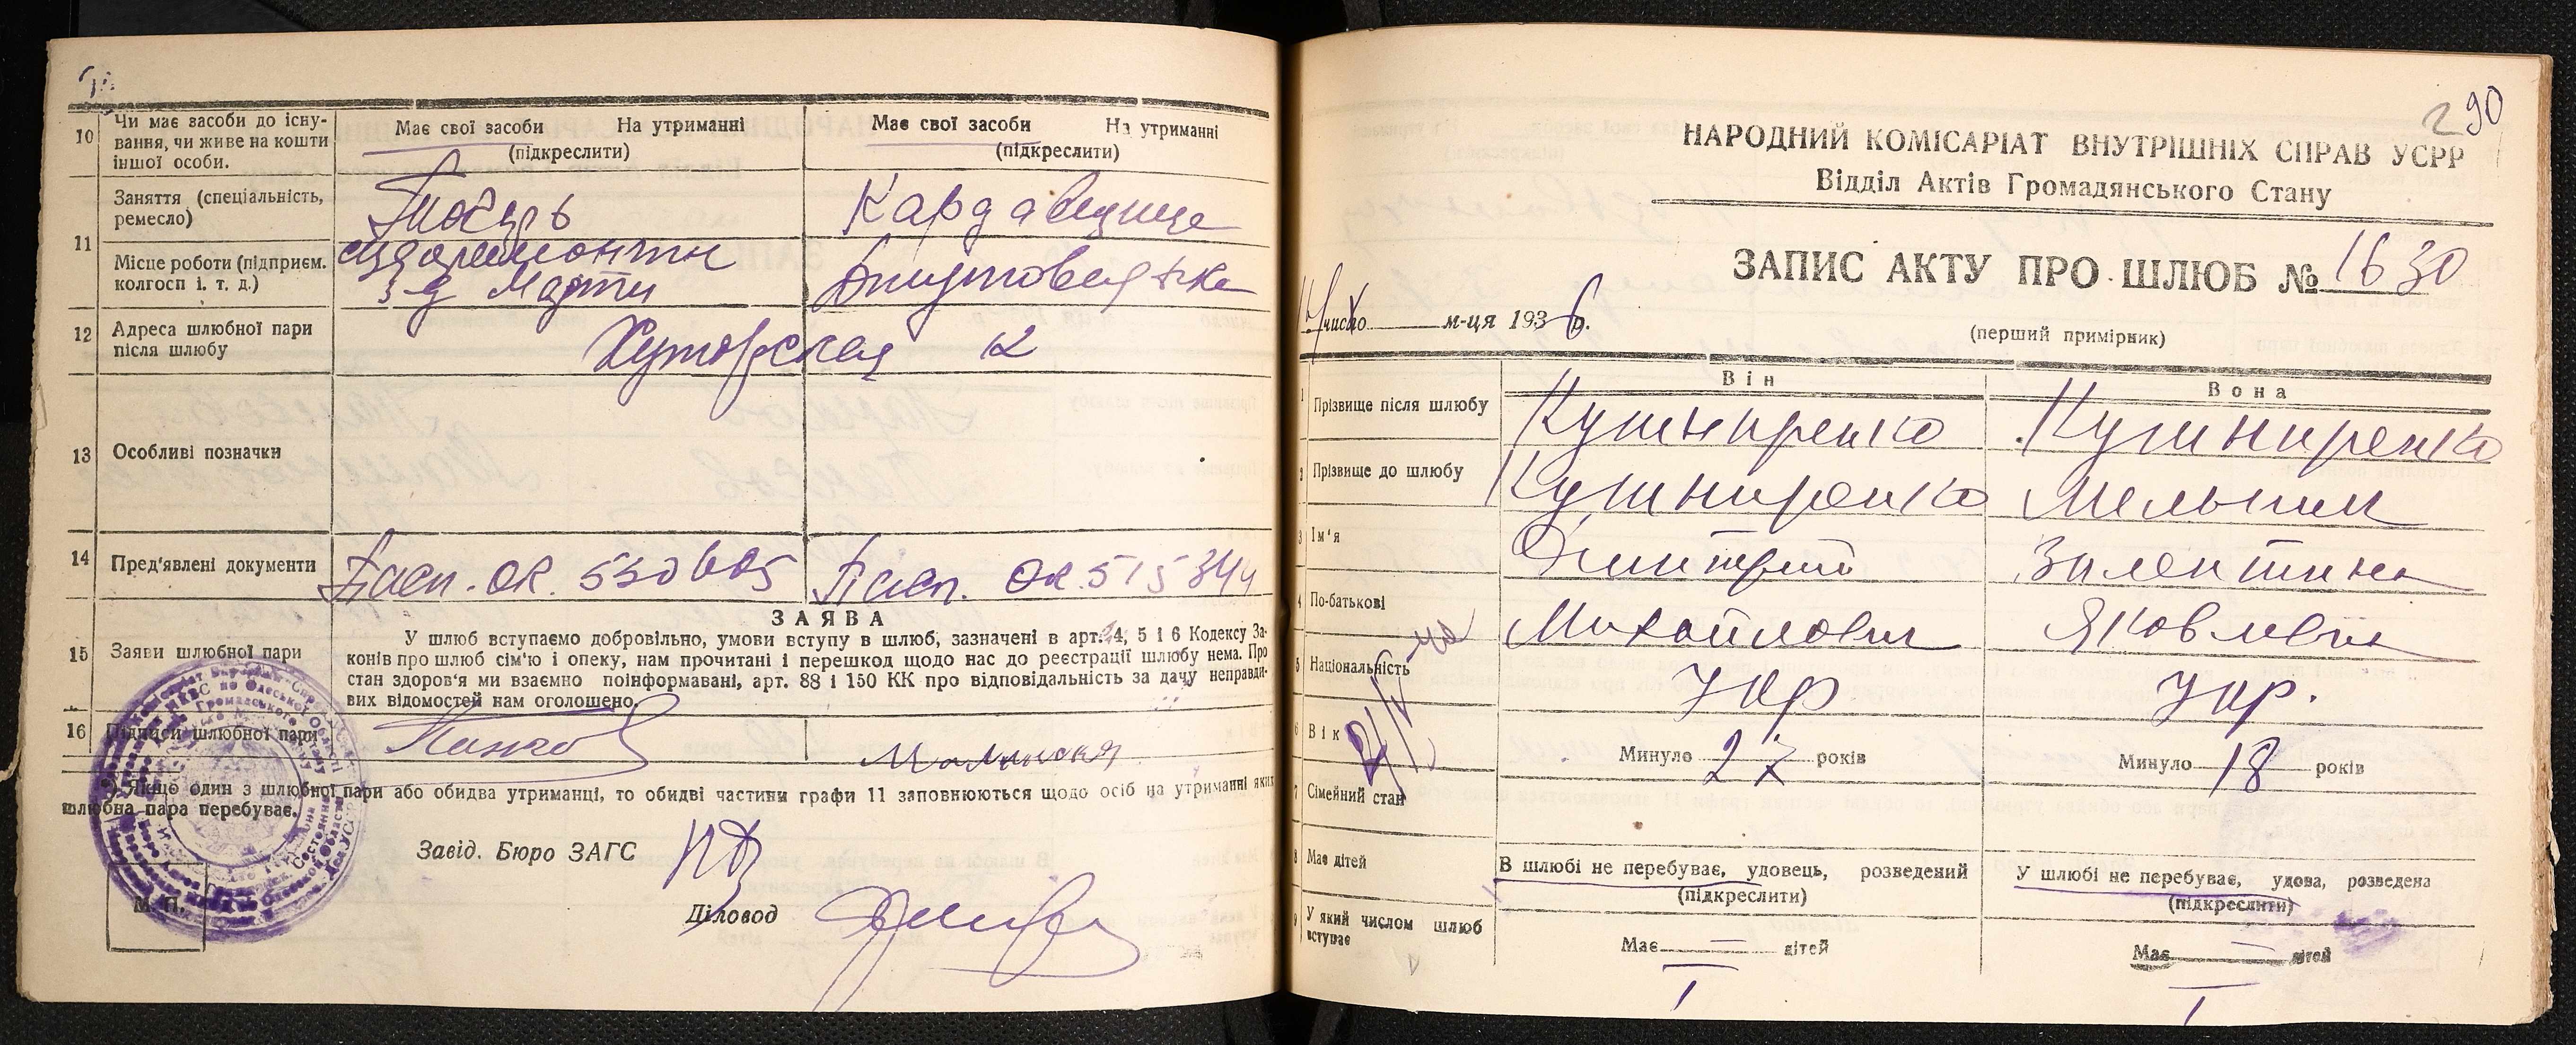 10 Чи має засоби до існу-
вання, чи живе на кошти
іншої особи.
Має свої засоби На утриманні
(підкреслити)
Має свої засоби На утриманні
(підкреслити)
11 Заняття (спеціальність,
ремесло)
Місце роботи (підприєм.
колгосп і. т. д.)
з-д Марти
12 Адреса шлюбної пари
після шлюбу
Хуторская 12
13 Особливі позначки
14 Пред'явлені документи
Пасп. ОК. 530605
Пасп. ОК. 515344
15 Заяви шлюбної пари
ЗАЯВА
У шлюб вступаємо добровільно, умови вступу в шлюб, зазначені в арт. 4, 5 і 6 Кодексу За-
конів про шлюб сім'ю і опеку, нам прочитані і перешкод щодо нас до реєстрації шлюбу нема. Про
стан здоров'я ми взаємно поінформавані, арт. 88 і 150 КК про відповідальність за дачу неправди-
вих відомостей нам оголошено.
16 Підписи шлюбної пари
). Якщо один з шлюбної пари або обидва утриманці, то обидві частини графи 11 заповнюються щодо осіб на утриманні яких
шлюбна пара перебуває.
Завід. Бюро ЗАГС
Діловод
М. П.
90
НАРОДНИЙ КОМІСАРІАТ ВНУТРІШНІХ СПРАВ УСРР
Відділ Актів Громадянського Стану
ЗАПИС АКТУ ПРО ШЛЮБ № 1630
число м-ця 1936 р.
(перший примірник)
Він
Вона
1 Прізвище після шлюбу
Кушниренко
Кушниренко
2 Прізвище до шлюбу
Кушниренко
Мельник
3 Ім'я
Дмитрий
Валентина
4 По-батькові
Михайлович
Яковлевна
5 Національність
Укр
Укр.
6 Вік
Минуло 27 років
Минуло 18 років
7 Сімейний стан
В шлюбі не перебуває, удовець, розведений
(підкреслити)
У шлюбі не перебуває, удова, розведена
(підкреслити)
8 Має дітей
Має — дітей
Має — дітей
9 У який числом шлюб
вступає
I
I